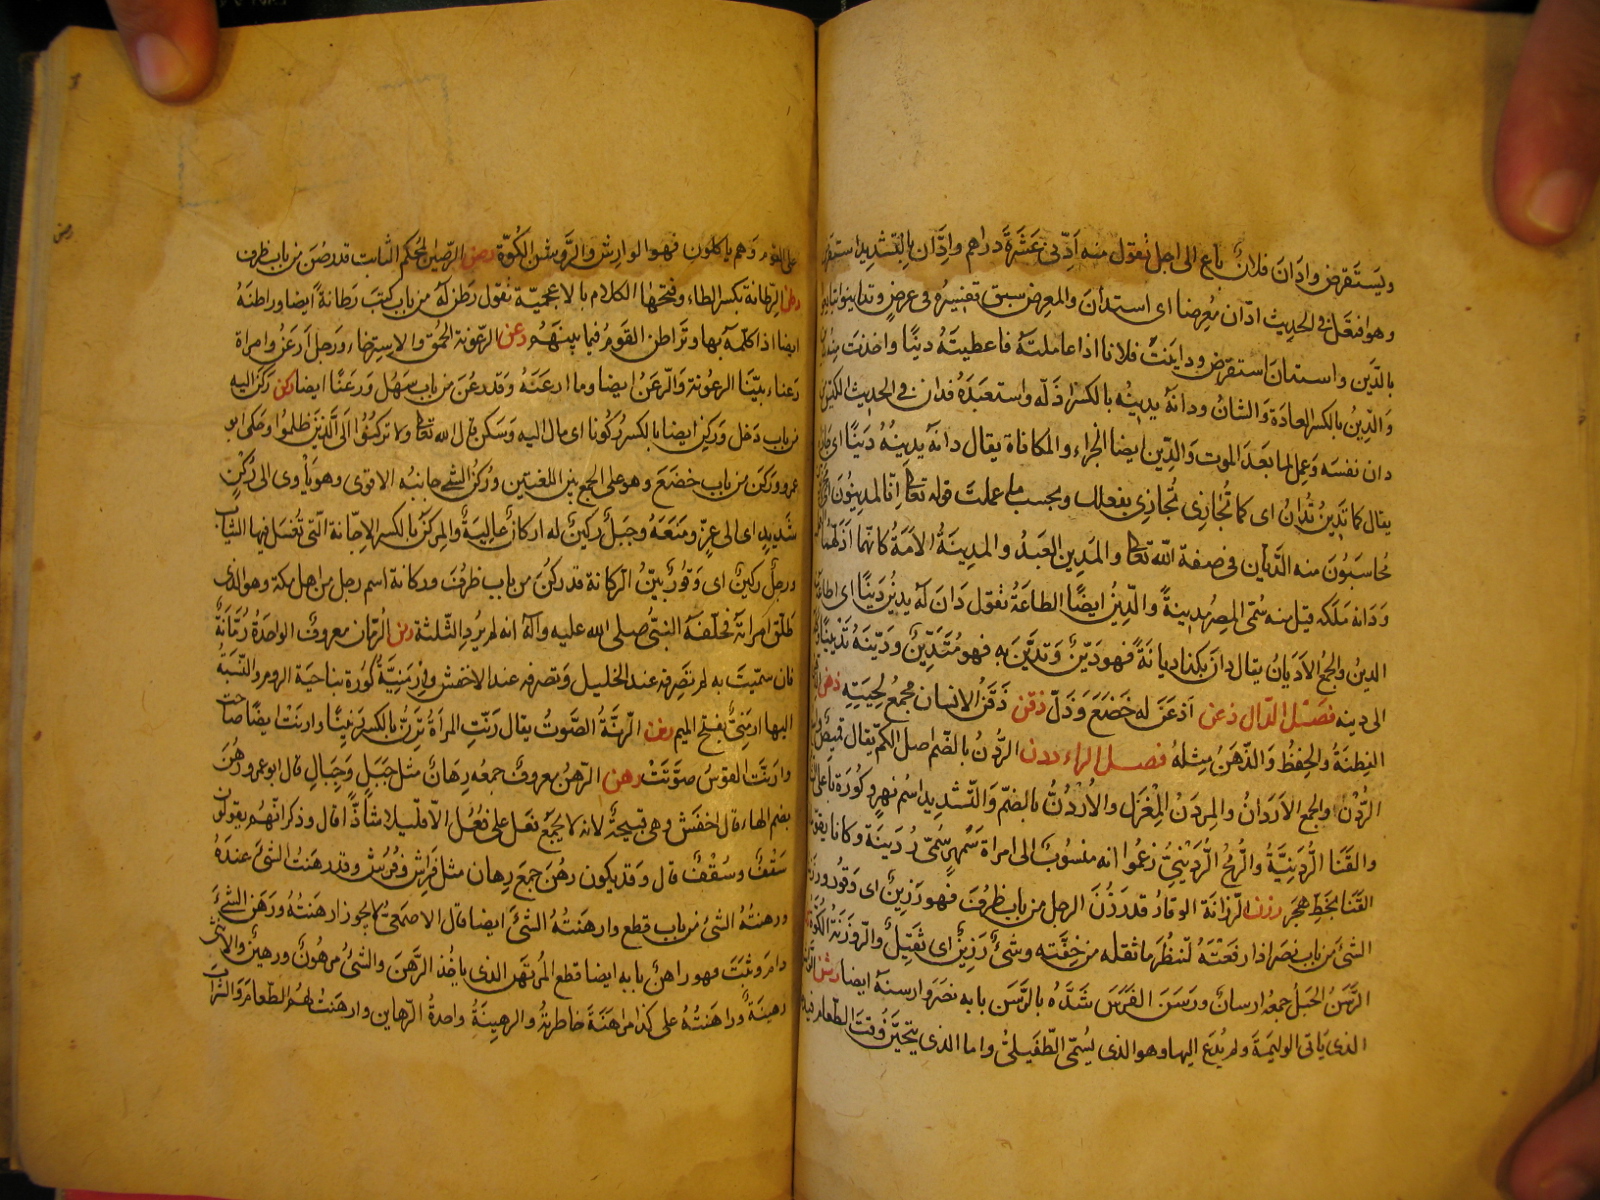 ويستقرض وادان فلان باع الى اجل تقول منه ادّنى عشرة دراهم وادّان بالتشديد استقرض
وهو افتعل فى الحديث ادّان مُعرِضا اى استدان والمعرض سبق تفسيره فى عرض وتداينوا تبايعوا
بالدَّين واستدان استقرض وداينتُ فلانا اذا عاملتَهُ فاعطيتَهُ دينًا واخذت منه
والدِّينُ بالكسر العادَة والشان ودانَهُ يدينه بالكسر اذلّه واستعبَدَهُ فدان فى الحديث الكيّس
دان نفسَه وعمِل لما بعدَ الموت والدِّين ايضا الجزاء والمكافاة يقال دانه يدينُه دينًا اى
يقال كما تَدِينُ تُدان اى كما تُجازى تُجازى بفعلك وبحسب ما عملت قوله تعالى انّا لمدينون اى
مُحاسَبُونَ منه الدّيّان فى صفة الله تعالى والمَدِين العبدُ والمدِينَةُ الامَةُ كانّهما اذلّهما
ودانه ملكه قيل منه سُمّى المِصرُ مدينةً والدِّينُ ايضًا الطاعَةُ تقول دَانَ له يدينُ دِينًا اى اطاعه
الدينُ والجمع الاديانُ يقال دانَ بكذا ديانةً فهو ديِّنٌ وتديَّنَ به فهو مُتَديِّنٌ وديّنَه تَدْيينًا
الى دينه فصل الذال ذعن اذعَنَ له خَضَعَ وَذَلَّ ذقن ذَقَنُ الانسان مجمع لحييه ذهن
الفِطنَةُ والحِفظُ والذَّهَنُ مِثلهُ فصل الراء ردن الرُّدْنُ بالضّم اصل الكم يقال قميص
الرُّدْنِ والجمع الاردانُ والمِردَنُ المِغْزَل والاُرْدُنُّ بالضمّ والتّشديد اسْم نهرٍ وكورَة باعلى
والقَنَا الرُّدَينِيَّةُ والرُّمحُ الرُّدَيْنِىُّ زعَمُوا انه منسوبٌ الى امراة سَمْهَرٍ سُمّى رُدَينَةَ وكانا يقوّمان
القنَا بخَطِّ هَجَر رزن الرّزانَة الوقارُ قد رَزُنَ الرجل من باب ظرُفَ فهو رَزِينٌ اى وقور ورزن
الشئ من باب نصَرَ اذا رفعْتَهُ لتنظُرَ ما ثقله من خِفّتِه وشئٌ رَزِينٌ اى ثقيلٌ والرَّوْزَنَةُ الكُوَّة
الرَّسَنُ الحَبلُ جمعُه ارسانٌ ورَسَنَ الفَرَسَ شَدَّهُ بالرَّسَن بابه نصَرَ وارسنه ايضا رشن
الذى يأتى الوليمَةَ ولم يُدعَ اليها وهو الذى يُسمّى الطّفَيلىَّ واما الذى يتحيّن وقت الطّعام فيدخل
على القوم وهم ياكلون فهو الوارش والرَّوشَن الكُوّة رصن الرّصين المُحكَم الثابت قد رصُنَ من باب ظرف
رطن الرطانة بكسر الطاء وفتحها الكلام بالاعجميّة تقول رَطن له من باب كتبَ رَطانةً ايضا وراطنَهُ
ايضا اذا كلّمه بها وتَراطن القومُ فيما بينَهُم رعن الرّعونة الحُمْق والاسترخاء ورَجل ارعَنُ وامراة
رَعناء بيّنا الرعُونة والرَّعَنُ ايضا وما ارعَنَهُ وقد رعُنَ من باب سَهُل ورَعَنًا ايضا ركن رَكَنَ اليه
من باب دخل ورَكِنَ ايضا بالكسر رُكُونا اى مال اليه وسَكن قال الله تعالى ولا تركَنُوا الى الَّذِينَ ظلموا وحكى ابو
عمرو ورَكَنَ من باب خضَعَ وهو على الجمع بين اللغتين ورُكنُ الشئ جانبُه الاقوى وهو يأوى الى رُكْنٍ
شديدٍ اى الى عزٍّ ومَنَعَةٍ وجَبَلٌ رَكينٌ له اركانٌ عاليةٌ والمِركَنُ بالكسر الاِجّانة التى تُغسَل فيها الثياب
ورجلٌ رَكينٌ اى وَقُورٌ بيِّنُ الرّكانة قد ركُنَ من باب ظرُفَ وركانة اسم رجل من اهل مكة وهو الذى
طَلّق امرأتَهُ فحلَّفَهُ النبىُّ صلى الله عليه وآله انه لم يُرِدِ الثَّلثة رمن الرُّمّان معروفٌ الواحدَةُ رُمّانَةٌ
فان سمّيت به لم تصرفه عند الخليل وتصرفه عند الاخفش وإرْمِنِيَةُ كُورَةٌ بناحية الروم والنِّسْبَةُ
اليها ارمَنِىٌّ بفتح الميم رنن الرَّنّةُ الصَّوتُ يقال رَنّتِ المرأةُ تَرِنُّ بالكسر رَنِينًا وارنّتْ ايضًا صاحت
وارنّت القوسُ صوّتَتْ رهن الرّهنُ معروفٌ جمعُه رِهَانٌ مثل حَبلٍ وحِبالٍ قال ابو عمرو رُهُنٌ
بضم الهاء قال اخفش وهى قبيحةٌ لانه لا يُجمَع فَعل على فُعُل الّا قليلا شاذّا قال وذكر انهُم يقولون
سَقْفٌ وسُقُفٌ قال وقد يكون رهُنٌ جمعَ رِهان مثل فِراشٍ وفُرُشٍ وقد رهَنتُ الشئَ عندَهُ
ورهنتُه الشئ من باب قطع وارهَنتُهُ الشّئَ ايضا قال الاصمعىّ لا يجوز ارهَنتُه ورَهَنَ الشئُ
دام وثبَتَ فهو راهنٌ بابه ايضا قطع المُرتَهِن الذى ياخُذ الرّهَنَ والشئُ مرهُونٌ ورهينٌ والانثى
رهينَةٌ وراهنتُهُ على كذا مراهَنَةً خاطرتُهُ والرهينَةُ واحدةُ الرّهاين وارهَنتُ لهم الطّعامَ والشّرابَ
رصن